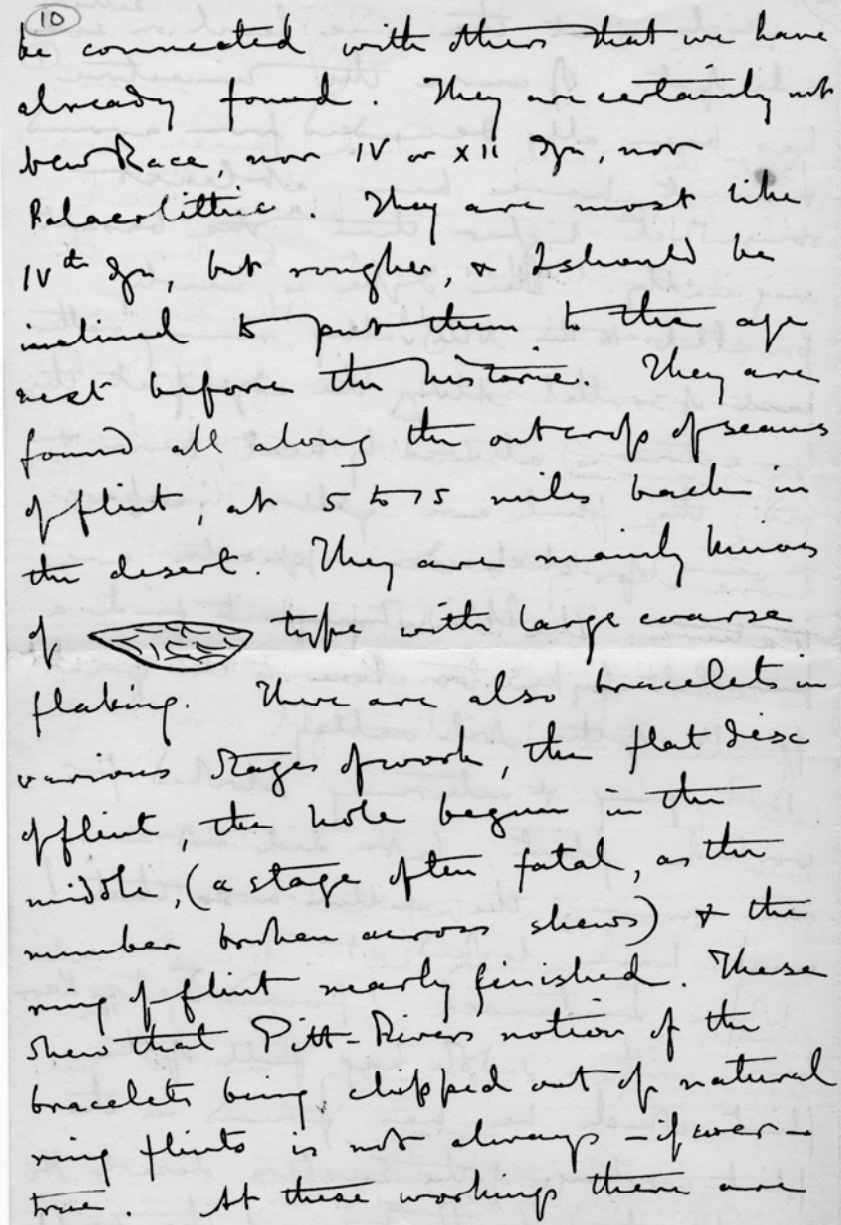 10
be connected with others that we have
already found. They are certainly not
New Race, nor IV or XII Dyn, nor
Palaeolithic. They are most like
IVth Dyn, but rougher, & I should be
inclined to put them to the age
next before the historic. They are
found all along the outcrop of seams
of flint, at 5 to 15 miles back in
the desert. They are mainly knives
of type with large coarse
flaking. There are also bracelets in
various stages of work, the flat disc
of flint, the hole begun in the
middle, (a stage often fatal, as the
number broken across shews) & the
ring of flint nearly finished. These
shew that Pitt-Rivers notion of the
bracelets being chipped out of natural
ring flints is not always - if ever -
true. At these workings there are